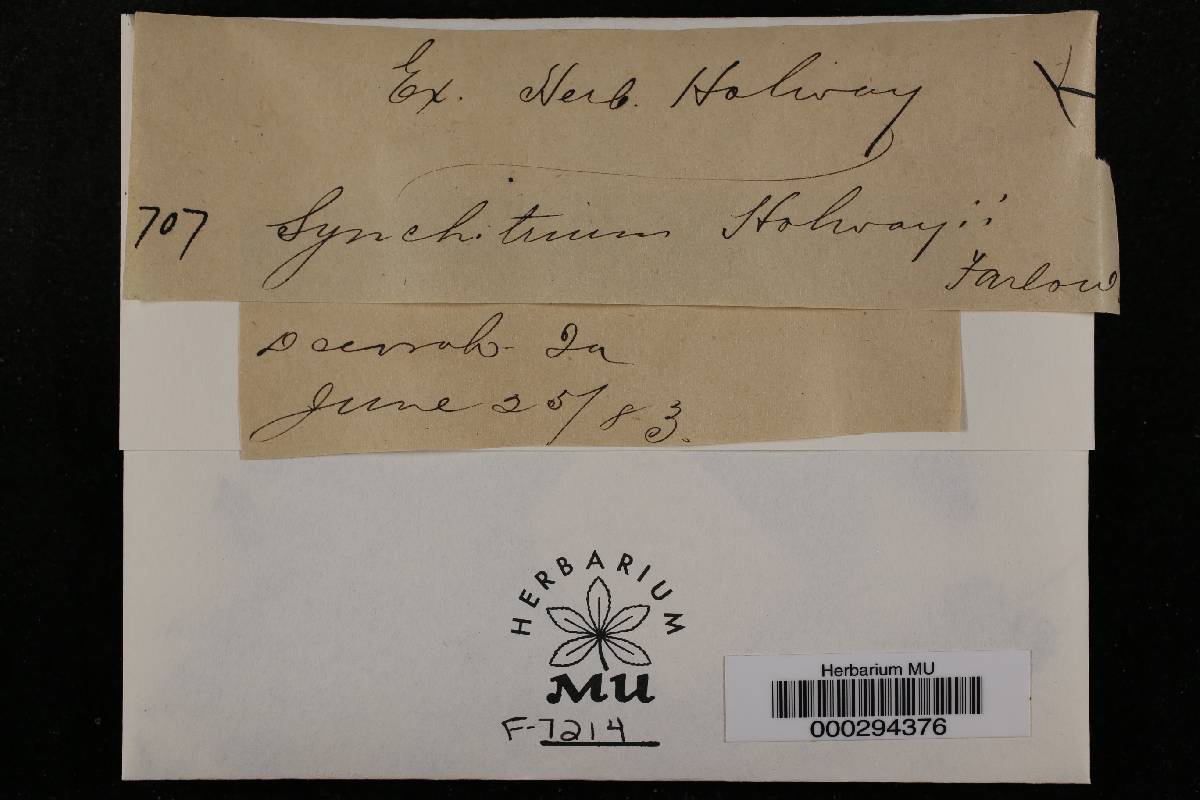 Ex. Herb. Holway K
707 Synchitrium Holwayii
Farlow
Decorah Ia
June 25/83.
HERBARIUM
MU
F-7214
Herbarium MU
000294376